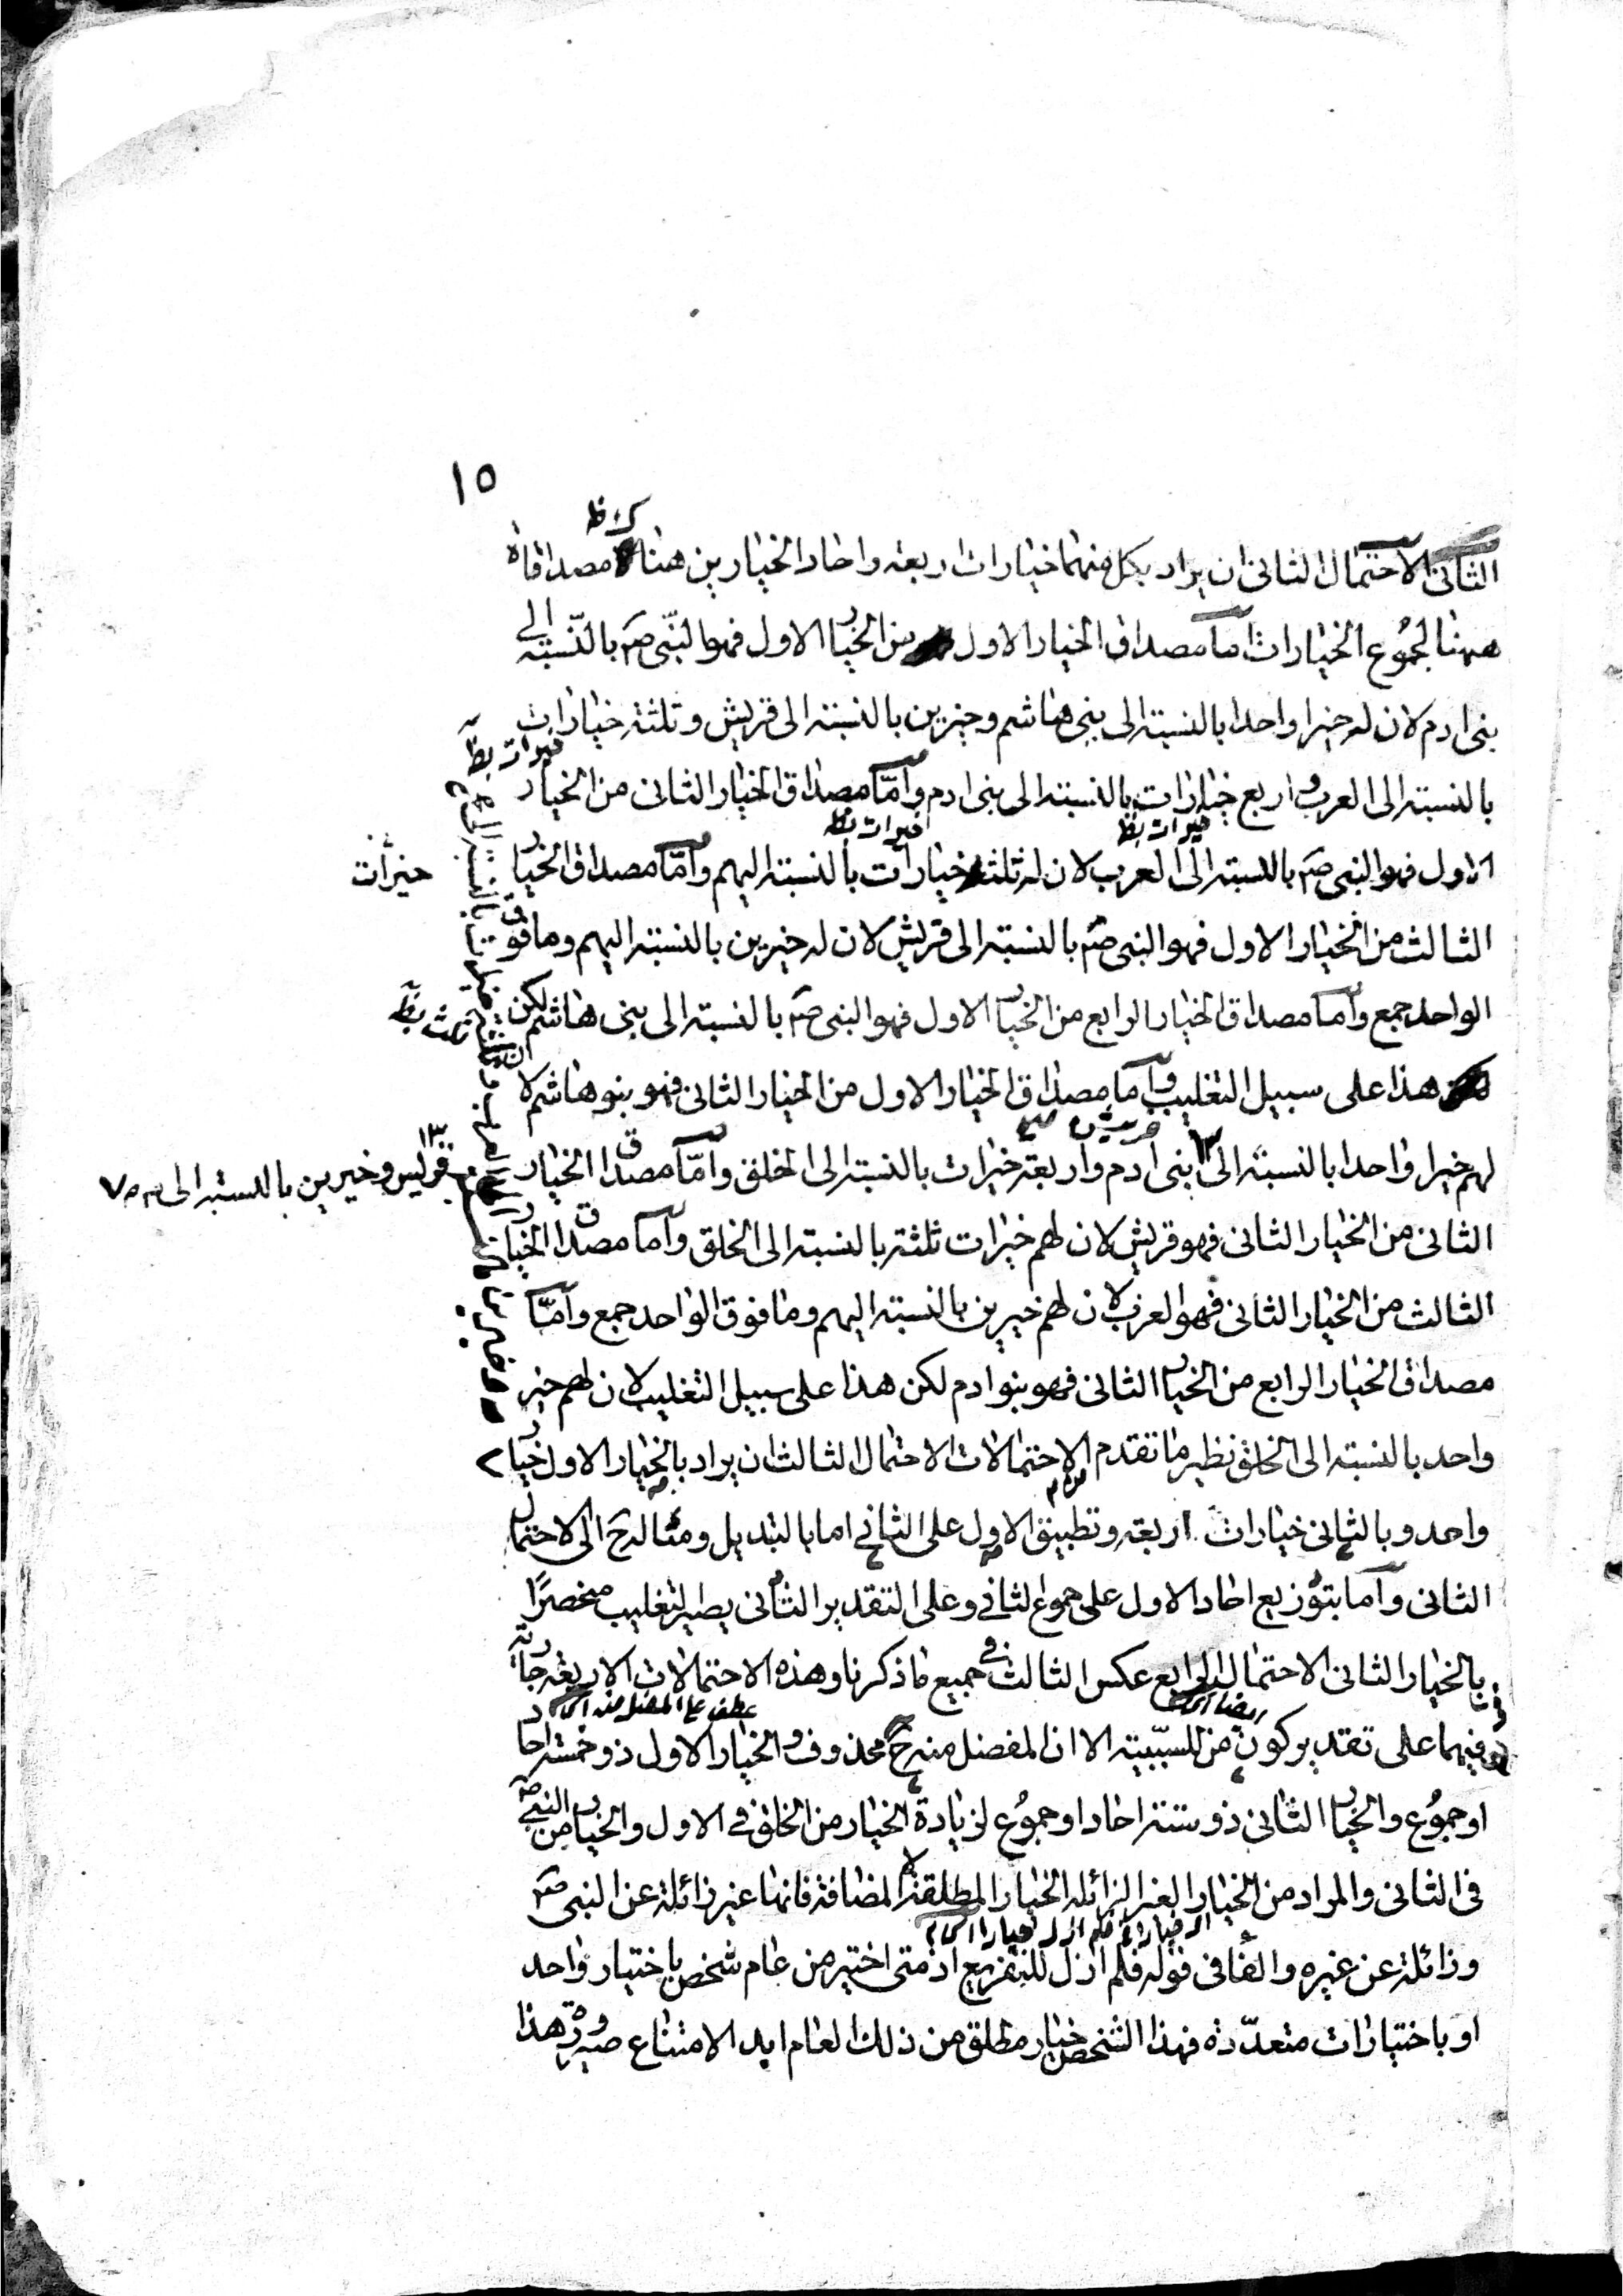 ١٥
الثانى الاحتمال الثانى ان يراد بكل منهما خيارات اربعة واحاد الخيارين هنا مصداقاة
ههنا لمجموع الخيارات اما مصداق الخيار الاول من الخيار الاول فهو النبى صم بالنسبة الى
بنى ادم لان له خيرا واحدا بالنسبة الى بنى هاشم وخيرين بالنسبة الى قريش وثلثة خيارات
بالنسبة الى العرب واربع خيارات بالنسبة الى بنى ادم واما مصداق الخيار الثانى من الخيار
خيرات بظ
خيرات بظ
خيرات بظ
الاول فهو النبى صم بالنسبة الى العرب لان له ثلثة خيارات بالنسبة اليهم واما مصداق الخيار
خيرات
الثالث من الخيار الاول فهو النبى صم بالنسبة الى قريش لان له خيرين بالنسبة اليهم وما فوق
الواحد جمع واما مصداق الخيار الرابع من الخيار الاول فهو النبى صم بالنسبة الى بنى هاشم لكن
هذا على سبيل التغليب واما مصداق الخيار الاول من الخيار الثانى فهو بنو هاشم لان
لهم خيرا واحدا بالنسبة الى بنى ادم واربعة خيرات بالنسبة الى الخلق واما مصداق الخيار
وخيرين بالنسبة الى
الثانى من الخيار الثانى فهو قريش لان لهم خيرات ثلثة بالنسبة الى الخلق واما مصداق الخيار
الثالث من الخيار الثانى فهو العرب لان لهم خيرين بالنسبة اليهم وما فوق الواحد جمع واما
مصداق الخيار الرابع من الخيار الثانى فهو بنوا ادم لكن هذا على سبيل التغليب لان لهم خير
واحد بالنسبة الى الخلق نظير ما تقدم الاحتمالات الاحتمال الثالث ان يراد بالخيار الاول خيار
واحد وبالثانى خيارات اربعة وتطبيق الاول على الثانى اما بالتبديل ومثاله ح الى الاحتمال
الثانى واما بتوزيع احاد الاول على مجموع الثانى وعلى التقدير الثانى يصير التغليب منحصرًا
بالخيار الثانى الاحتمال الرابع عكس الثالث فى جميع ما ذكرنا وهذه الاحتمالات الاربعة جارية
عطف على المفضل منه
فيهما على تقدير كون من للسببية الا ان المفضل منه ح محذوف والخيار الاول ذو خمسة احاد
او مجموع والخيار الثانى ذو ستة احاد او مجموع لزيادة الخيار من الخلق فى الاول والخيار من النبى صم
فى الثانى والمراد من الخيار الغير الزائلة الخيار المطلقة لا المضافة فانها غير زائلة عن النبى صم
وزائلة عن غيره والفا فى قوله فلم ازل للتفريع اذ متى اختير من عام شخص باختيار واحد
او باختيارات متعددة فهذا الشخص خيار مطلق من ذلك العام ابدا لامتناع صيرورة هذا